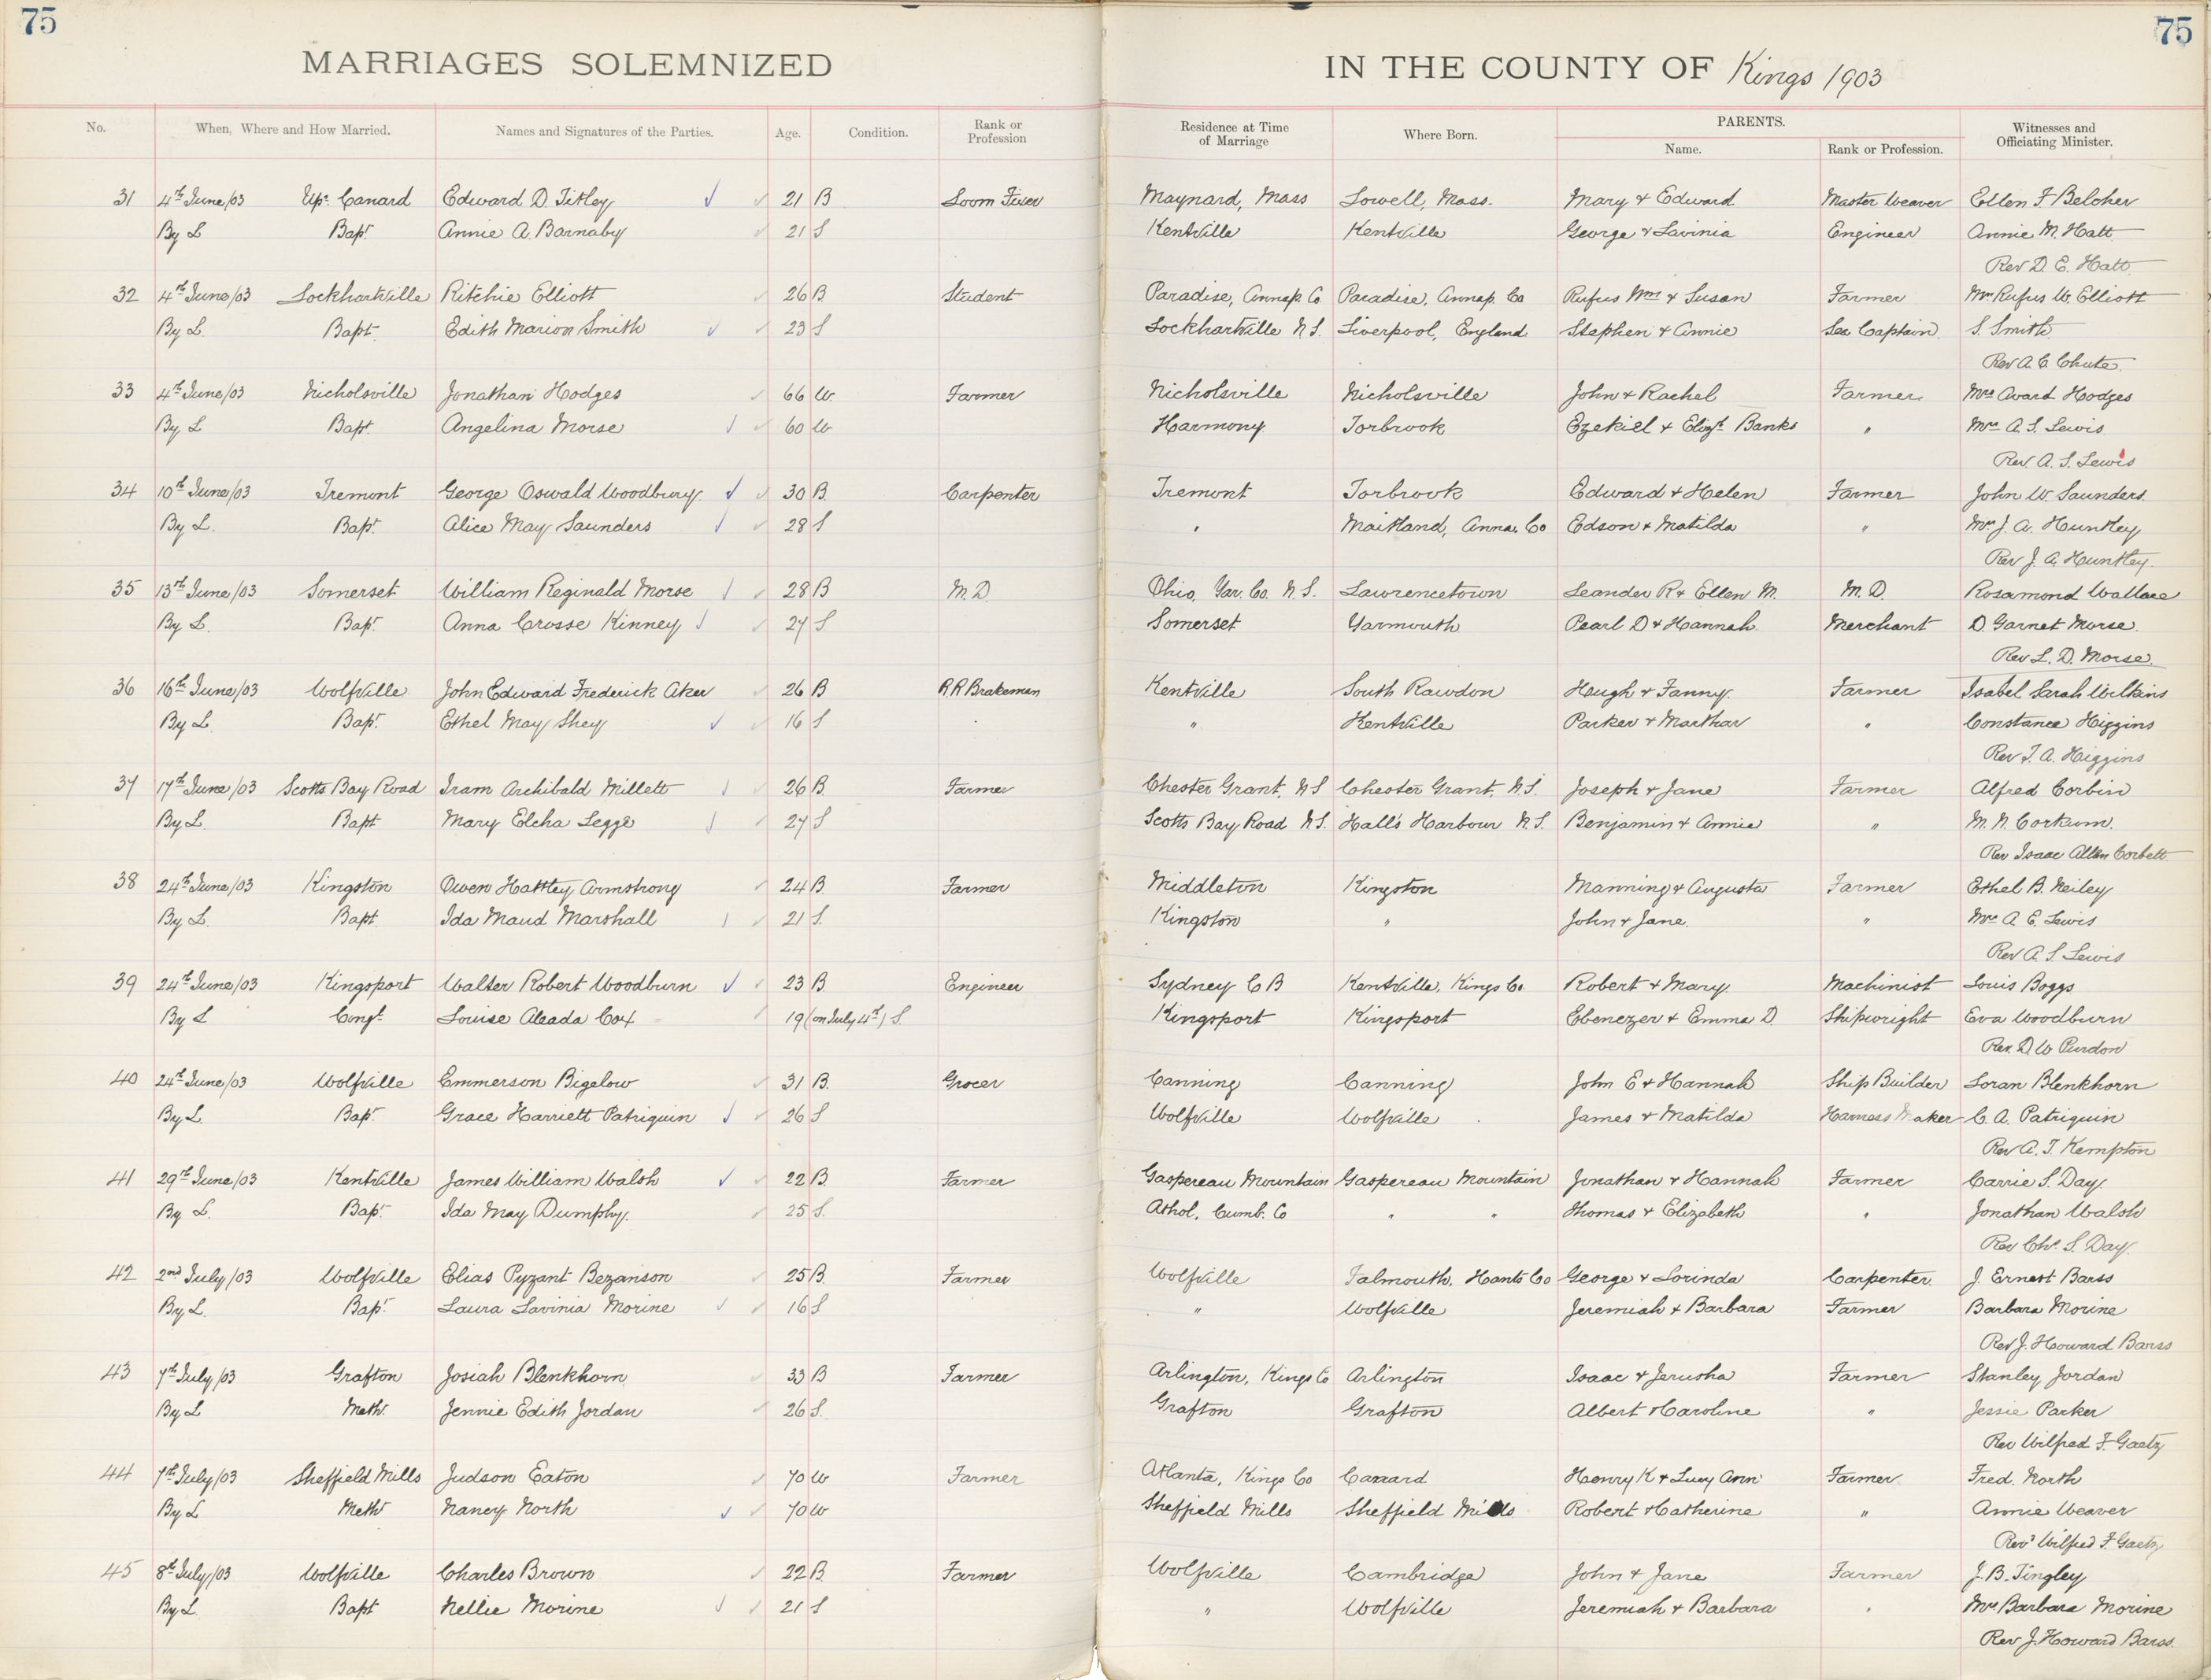 75
75
MARRIAGES SOLEMNIZED IN THE COUNTY OF Kings 1903
No. When, Where and How Married. Names and Signatures of the Parties. Age. Condition. Rank or Profession Residence at Time of Marriage Where Born. PARENTS. Name. Rank or Profession. Witnesses and Officiating Minister.
31 4th June/03 Upr Canard Edward D Titley 21 B Loom Fixer Maynard, Mass Lowell, Mass. Mary & Edward Master Weaver Ellen F Belcher
By L Bapt Annie A. Barnaby 21 S Kentville Kentville George & Lavinia Engineer Annie M. Hatt
Rev D. E. Hatt
32 4th June/03 Lockhartville Ritchie Elliott 26 B Student Paradise, Annap. Co Paradise, Annap. Co Rufus Wm & Susan Farmer Mrs Rufus W. Elliott
By L. Bapt. Edith Marion Smith 23 S Lockhartville N.S. Liverpool, England Stephen & Annie Sea Captain S. Smith
Rev A. C. Chute
33 4th June/03 Nicholsville Jonathan Hodges 66 W Farmer Nicholsville Nicholsville John & Rachel Farmer Mrs Avard Hodges
By L Bapt Angelina Morse 60 W Harmony Torbrook Ezekiel & Elizt. Banks " Mrs A. S. Lewis
Rev. A. S. Lewis
34 10th June/03 Tremont George Oswald Woodbury 30 B. Carpenter Tremont Torbrook Edward & Helen Farmer John W Saunders.
By L. Bapt Alice May Saunders 28 S " Maitland, Anna. Co Edson & Matilda " Mrs J. A. Huntley
Rev J. A. Huntley.
35 13th June/03 Somerset William Reginald Morse 28 B M.D. Ohio, Yar. Co. N.S. Lawrencetown Leander R & Ellen M. M.D. Rosamond Wallace
By L. Bapt Anna Crosse Kinney 27 S Somerset Yarmouth Pearl D & Hannah Merchant D. Garnet Morse.
Rev L. D. Morse.
36 16th June/03 Wolfville John Edward Frederick Aker 26 B RR Brakeman Kentville South Rawdon Hough & Fanny Farmer Isabel Sarah Wilkins
By L. Bapt Ethel May Shey 16 S " Kentville Parker & Marthar " Constance Higgins
Rev T. A. Higgins
37 17th June/03 Scotts Bay Road Iram Archibald Millett 26 B. Farmer Chester Grant, N.S Chester Grant, N.S. Joseph & Jane Farmer Alfred Corbin
By L. Bapt Mary Elcha Legge 27 S Scotts Bay Road N.S. Hall's Harbour N.S. Benjamin & Annie " M. N. Corkum.
Rev Isaac Allen Corbett
38 24th June/03 Kingston Owen Hattley Armstrong 24 B. Farmer Middleton Kingston Manning & Augusta Farmer Ethel B. Neiley
By L. Bapt. Ida Maud Marshall 21 S. Kingston " John & Jane. " Mrs A. E. Lewis
Rev A. S Lewis
39 24th June/03 Kingsport Walter Robert Woodburn 23 B Engineer Sydney C B Kentville, Kings Co. Robert & Mary Machinist Louis Boggs
By L Congl. Louise Aleada Cox 19 (on July 4th) S. Kingsport Kingsport Ebenezer & Emma D. Shipwright Eva Woodburn
Rev. D. W Purdon
40 24th June/03 Wolfville Emmerson Bigelow 31 B. Grocer Canning Canning John E & Hannah Ship Builder Loran Blenkhorn
By L. Bapt Grace Harriett Patriquin 26 S Wolfville Wolfville James & Matilda Harness Maker C. A. Patriquin
Rev A. T. Kempton
41 29th June/03 Kentville James William Walsh 22 B Farmer Gaspereau Mountain Gaspereau Mountain Jonathan & Hannah Farmer Carrie S. Day
By L. Bapt Ida May Dumphy. 25 S. Athol, Cumb. Co " " Thomas & Elizabeth " Jonathan Walsh
Rev Chs. S. Day.
42 2nd July/03 Wolfville Elias Pyzant Bezanson 25 B. Farmer Wolfville Falmouth, Hants Co George & Lorinda Carpenter J. Ernest Barss
By L. Bapt Laura Lavinia Morine 16 S " Wolfville Jeremiah & Barbara Farmer Barbara Morine
Rev J. Howard Barss
43 7th July/03 Grafton Josiah Blenkhorn 33 B Farmer Arlington, Kings Co Arlington Isaac & Jerusha Farmer Stanley Jordan
By L Meth. Jennie Edith Jordan 26 S. Grafton Grafton Albert & Caroline " Jessie Parker
Rev Wilfred F. Gaetz
44 7th July/03 Sheffield Mills Judson Eaton 70 W Farmer Atlanta, Kings Co Canard Henry K & Lucy Ann Farmer Fred. North
By L Meth Nancy North 70 W Sheffield Mills Sheffield Mills Robert & Catherine " Annie Weaver
Revd Wilfred F Gaetz
45 8th July/03 Wolfville Charles Brown 22 B. Farmer Wolfville Cambridge John & Jane Farmer J. B. Tingley
By L. Bapt Nellie Morine 21 S " Wolfville Jeremiah & Barbara " Mrs Barbara Morine
Rev J. Howard Barss.